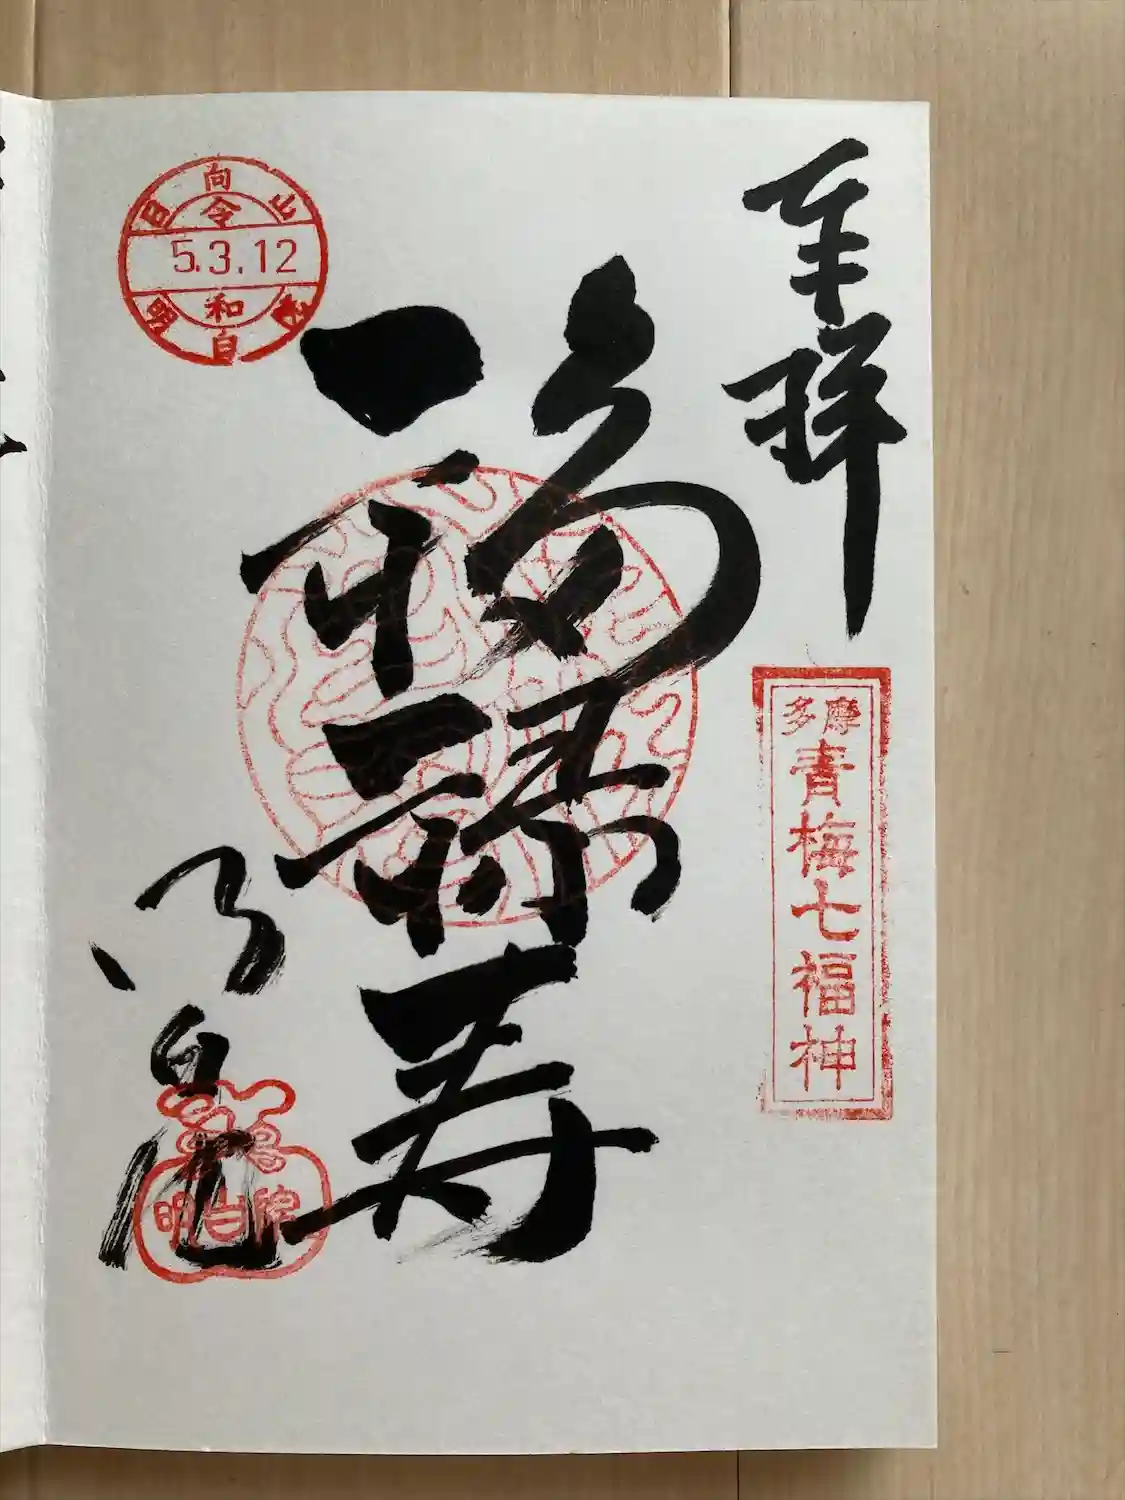 奉拝
多摩
青梅七福神
福禄寿
日向
令
5.3.12
和
明白院
明白院